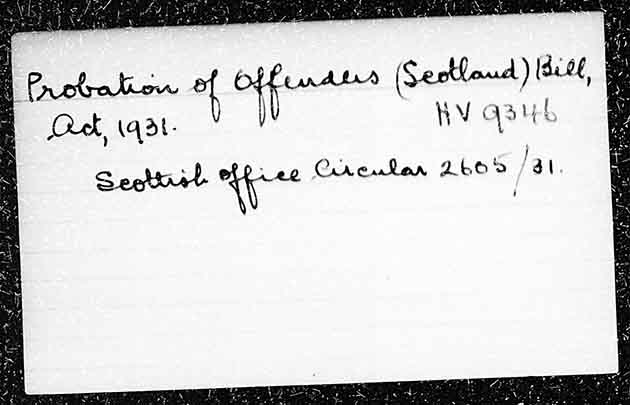 Probation of Offenders (Scotland) Bill,
Act, 1931.
HV 9346
Scottish Office Circular 2605/31.